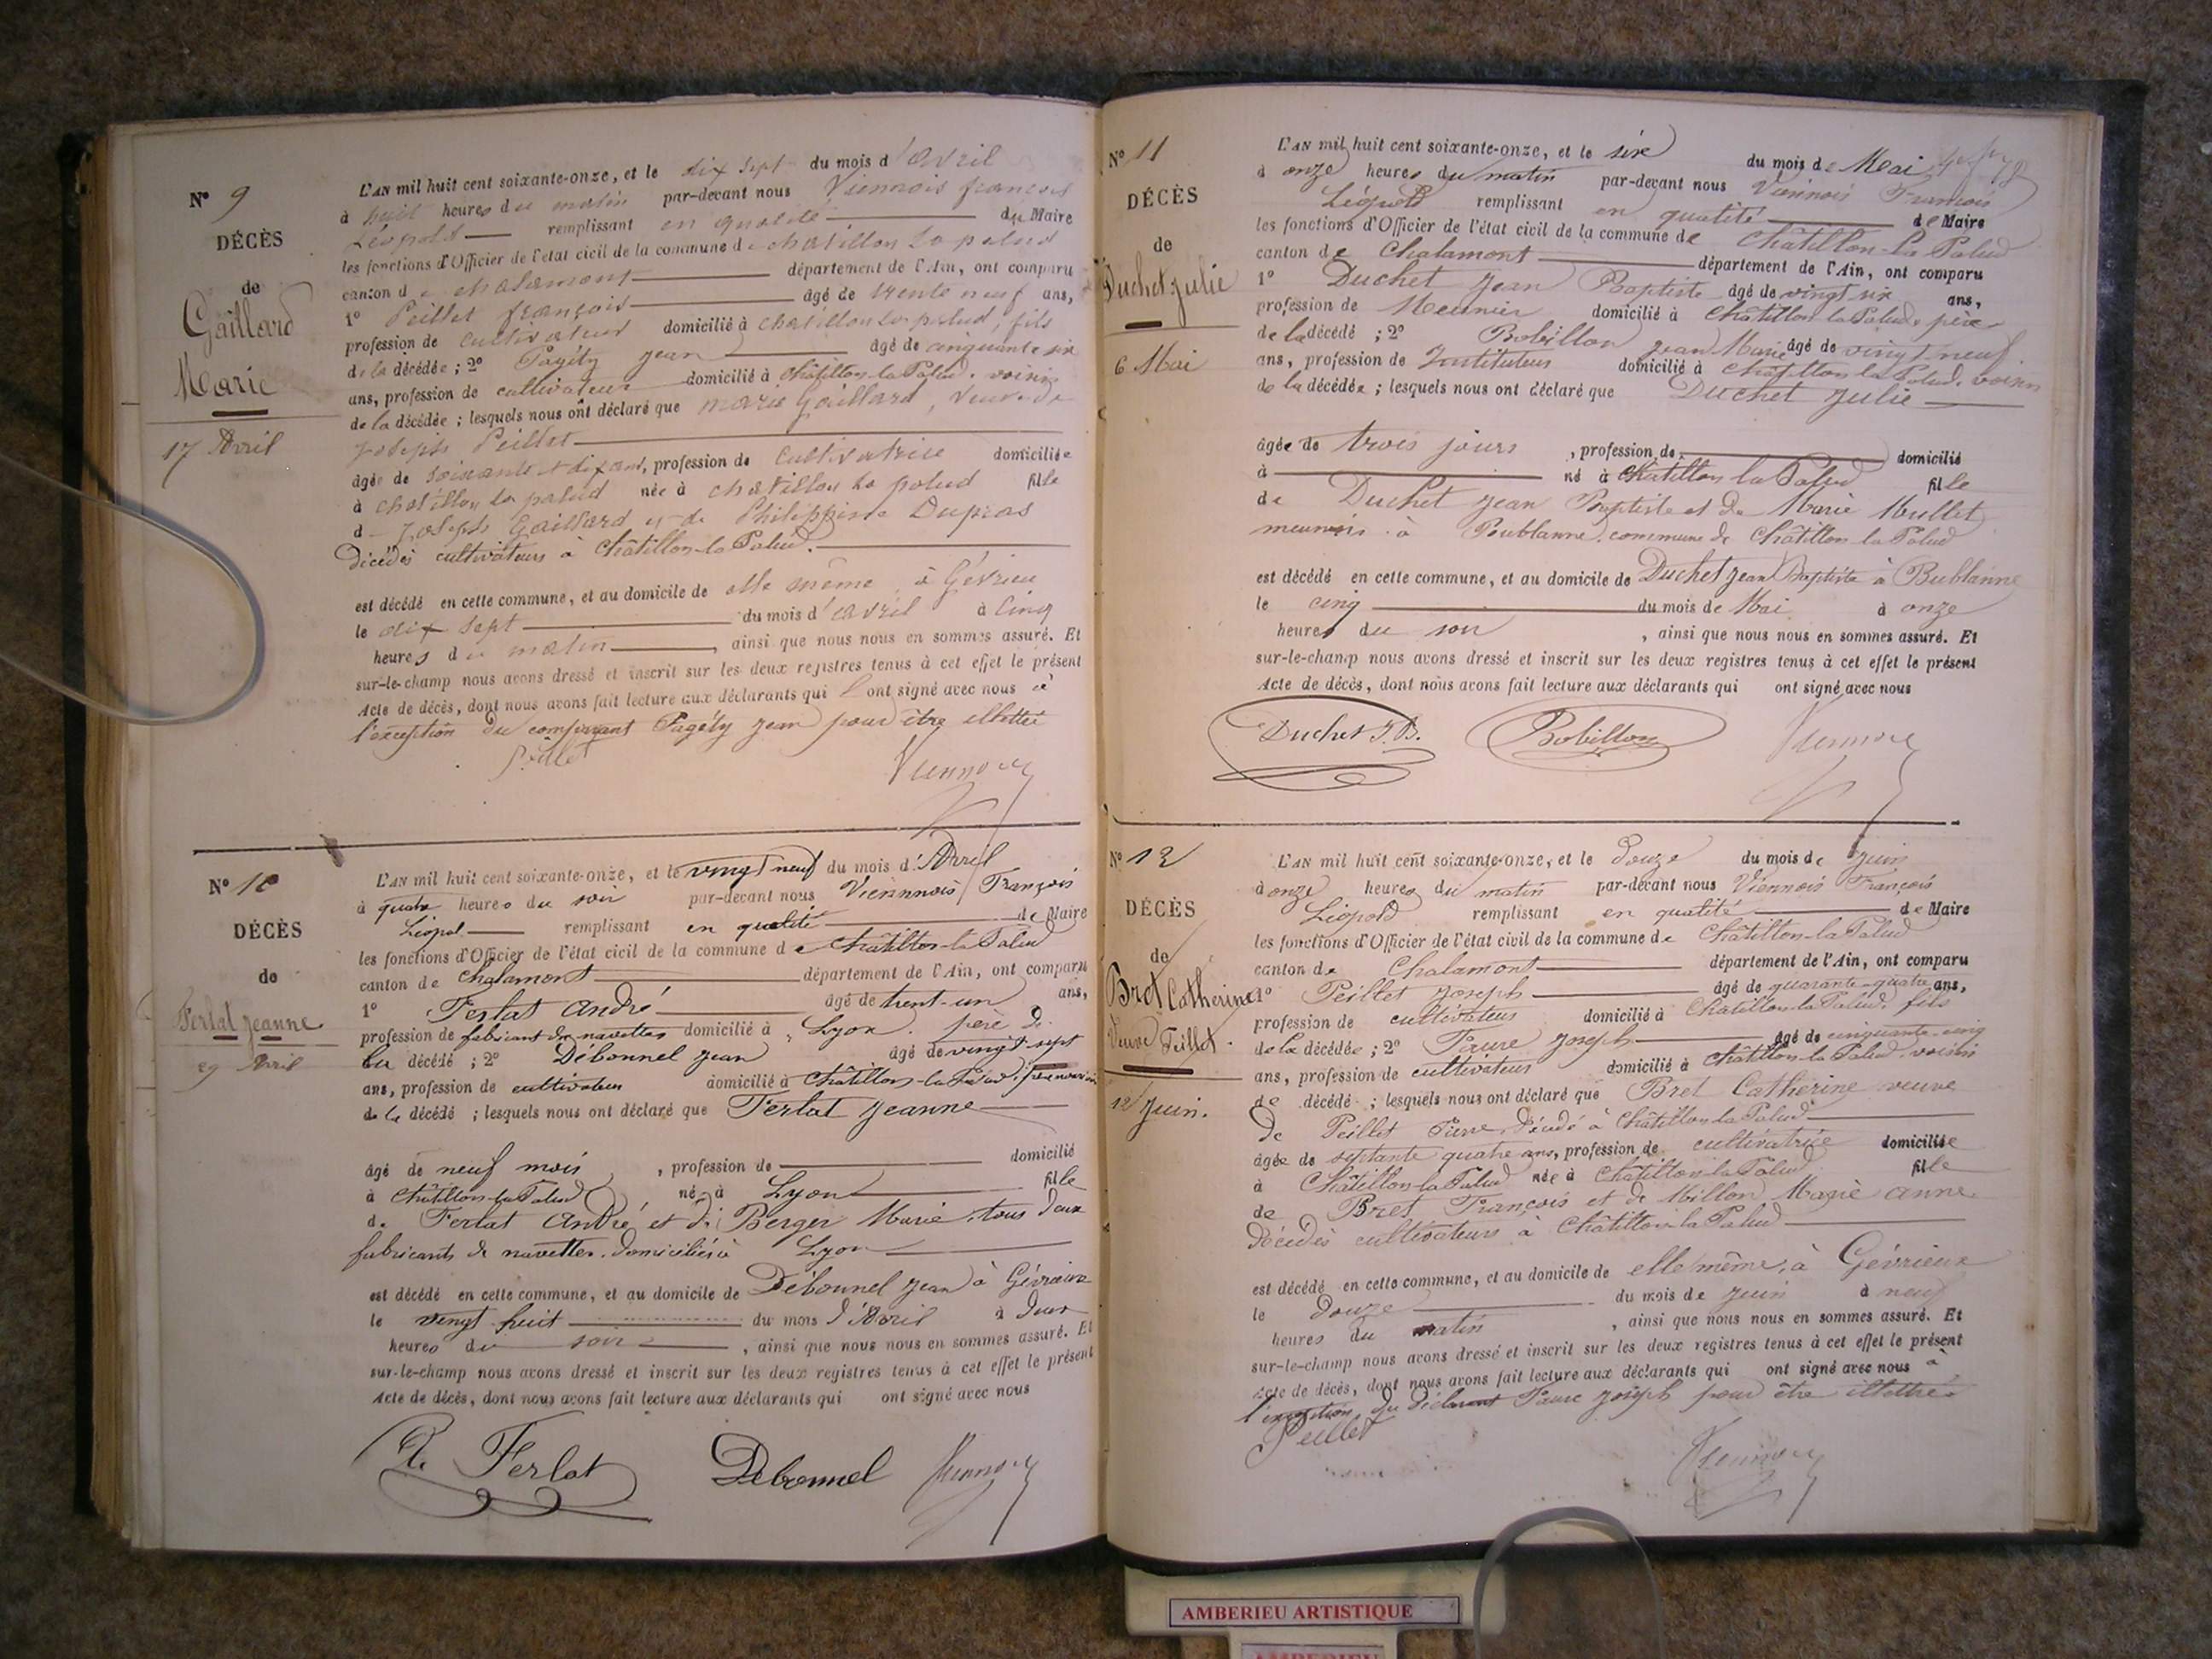 N° 9
DÉCÈS
de
Gaillard
Marie
17 Avril
L'AN mil huit cent soixante-onze, et le dix sept du mois d'avril
à huit heures du matin par-devant nous Viennois françois
Léopold remplissant en qualité du Maire
les fonctions d'Officier de l'état civil de la commune de chatillon la palud
canton de chalamont département de l'Ain, ont comparu
1° Peillet françois âgé de trente neuf ans,
profession de cultivateur domicilié à chatillon la palud, fils
de la décédée ; 2° Pagéty Jean âgé de cinquante six
ans, profession de cultivateur domicilié à Châtillon-la-Palud. voisin
de la décédée ; lesquels nous ont déclaré que marie Gaillard, veuve de
Joseph Peillet
âgée de soixante et dix ans, profession de cultivatrice domiciliée
à chatillon la palud née à chatillon la palud fille
de Joseph Gaillard et de Philippine Dupras
décédés cultivateurs à Châtillon-la-Palud.
est décédé en cette commune, et au domicile de elle même à Gévrieu
le dix sept du mois d'avril à cinq
heures du matin, ainsi que nous nous en sommes assuré. Et
sur-le-champ nous avons dressé et inscrit sur les deux registres tenus à cet effet le présent
Acte de décès, dont nous avons fait lecture aux déclarants qui l'ont signé avec nous à
l'exception du comparant Pagéty Jean pour être illettré
Peillet
Viennois
N° 10
DÉCÈS
de
Ferlat Jeanne
29 Avril
L'AN mil huit cent soixante-onze, et le vingt neuf du mois d'Avril
à quatre heures du soir par-devant nous Viennnois François
Léopol remplissant en qualité de Maire
les fonctions d'Officier de l'état civil de la commune de Châtillon-la-Palud
canton de Chalamont département de l'Ain, ont comparu
1° Ferlat André âgé de trent-un ans,
profession de fabricant de navettes domicilié à Lyon. père de
la décédé ; 2° Débonnel Jean âgé de vingt-sept
ans, profession de cultivateur domicilié à Châtillon-la-Palud.
de la décédé ; lesquels nous ont déclaré que Ferlat Jeanne
âgé de neuf mois, profession de domicilié
à Châtillon-la-Palud né à Lyon fille
de Ferlat André et de Berger Marie, tous deux
fabricants de navettes. domiciliés à Lyon
est décédé en cette commune, et au domicile de Débonnel Jean à Gévrieux
le vingt-huit du mois d'Avril à deux
heures du soir, ainsi que nous nous en sommes assuré. Et
sur-le-champ nous avons dressé et inscrit sur les deux registres tenus à cet effet le présent
Acte de décès, dont nous avons fait lecture aux déclarants qui ont signé avec nous
A. Ferlat Debonnel Viennois
N° 11
DÉCÈS
de
Duchet Julie
6 Mai
L'AN mil huit cent soixante-onze, et le six du mois de Mai
à onze heures du matin par-devant nous Viennois François
Léopold remplissant en qualité de Maire
les fonctions d'Officier de l'état civil de la commune de Châtillon-la-Palud
canton de Chalamont département de l'Ain, ont comparu
1° Duchet Jean Baptiste âgé de vingt six ans,
profession de Meunier domicilié à Châtillon-la-Palud. père
de la décédé ; 2° Bobillon Jean Marie âgé de vingt neuf
ans, profession de Instituteur domicilié à Châtillon la Palud. voisin
de la décédée ; lesquels nous ont déclaré que Duchet Julie
âgée de trois jours, profession de domicilié
à né à Châtillon la Palud fille
de Duchet Jean Baptiste et de Marie Mullet
meuniers à Poublanne, commune de Châtillon-la-Palud
est décédé en cette commune, et au domicile de Duchet Jean Baptiste à Bublanne
le cinq du mois de Mai à onze
heures du soir, ainsi que nous nous en sommes assuré. Et
sur-le-champ nous avons dressé et inscrit sur les deux registres tenus à cet effet le présent
Acte de décès, dont nous avons fait lecture aux déclarants qui ont signé avec nous
Duchet J.B. Bobillon Viennois
N° 12
DÉCÈS
de
Bret Catherine
Veuve Peillet.
12 Juin.
L'AN mil huit cent soixante-onze, et le douze du mois de Juin
à onze heures du matin par-devant nous Viennois François
Léopold remplissant en qualité de Maire
les fonctions d'Officier de l'état civil de la commune de Châtillon-la-Palud
canton de Chalamont département de l'Ain, ont comparu
1° Peillet Joseph âgé de quarante-quatre ans,
profession de cultivateur domicilié à Châtillon-la-Palud. fils
de la décédée ; 2° Faure Joseph âgé de cinquante-cinq
ans, profession de cultivateur domicilié à Châtillon-la-Palud. voisin
de décédé ; lesquels nous ont déclaré que Bret Catherine veuve
de Peillet Pierre, décédé à Châtillon-la-Palud
âgée de septante quatre ans, profession de cultivatrice domiciliée
à Châtillon-la-Palud née à Châtillon-la-Palud fille
de Bret François et de Millon Marie Anne
décédés cultivateurs à Châtillon-la-Palud
est décédé en cette commune, et au domicile de elle même, à Gévrieux
le douze du mois de Juin à neuf
heures du matin, ainsi que nous nous en sommes assuré. Et
sur-le-champ nous avons dressé et inscrit sur les deux registres tenus à cet effet le présent
Acte de décès, dont nous avons fait lecture aux déclarants qui ont signé avec nous à
l'exception du déclarant Faure Joseph pour être illettré
Peillet
Viennois
AMBERIEU ARTISTIQUE
AMBERIEU